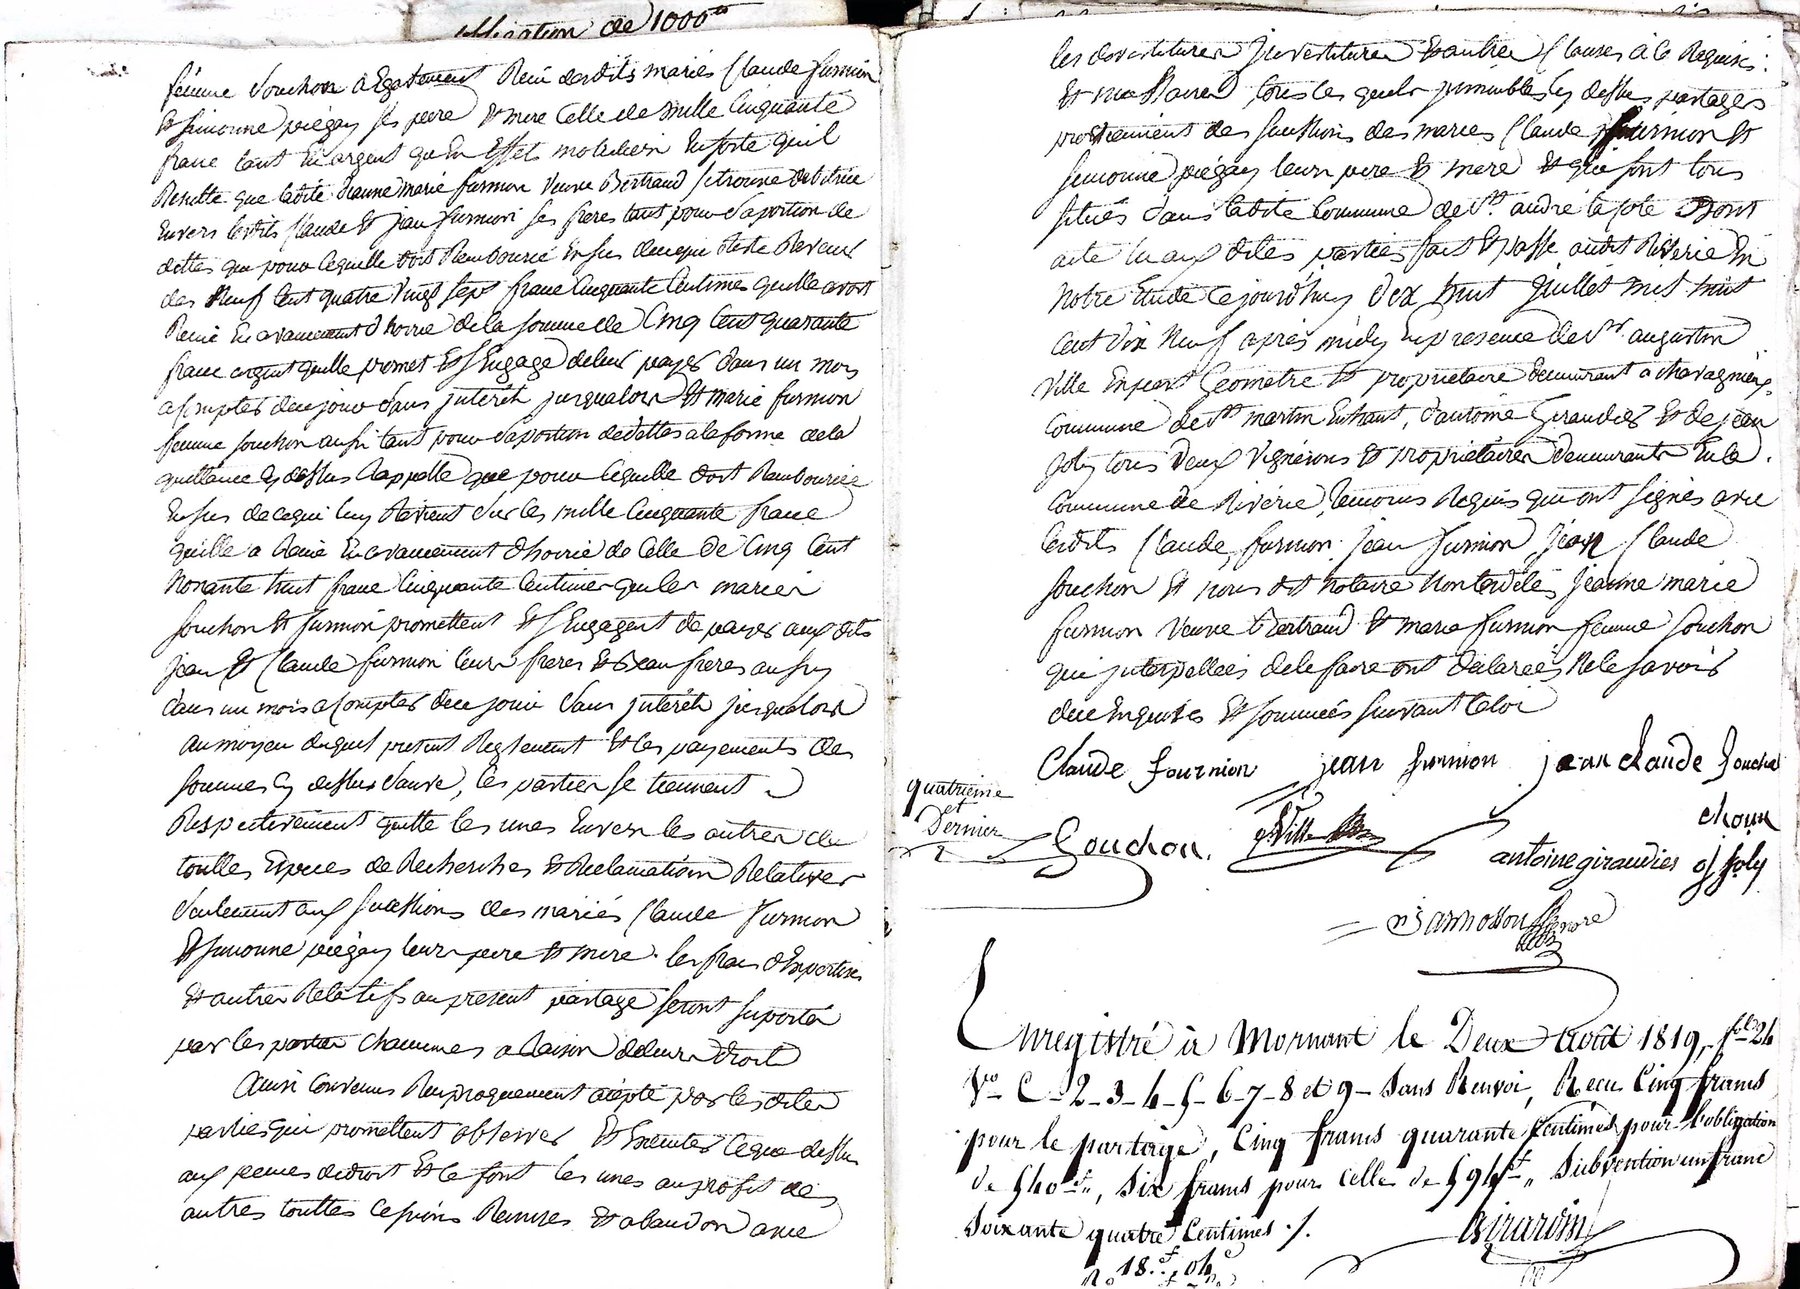 obligation de 1000 tt
femme Souchon a Egalement Reçu desdits mariés Claude furnion
Et Simonne piégay ses pere Et mere Celle de mille Cinquante
franc tant En argent qu'En Effets mobiliers Ensorte qu'il
Resulte que ladite Jeanne marie furnion Veuve Bertrand se trouve debitrice
Envers lesdits Claude Et jean furnion ses freres tant pour sa portion de
dettes que pour laquelle doit Remboursé En sus de ce qui Reste Revenu
des Neuf Cent quatre Vingt sept franc Cinquante Centimes qu'elle avoit
Reçu En avancement d'hoirie de la somme de Cinq Cent quarante
franc argent qu'elle promet Et s'Engage de leur payer dans un mois
a Compter de ce jour Sans jntérêt jusqualors Et marie furnion
femme Souchon aussi tant pour sa portion de dettes a la forme de la
quittance Cy dessus Rappellé que pour laquelle doit Remboursée
En sus de ce qui luy Revient sur les mille Cinquante franc
qu'elle a Reçu En avancement d'hoirie de Celle de Cinq Cent
Nonante huit franc Cinquante Centimes que les mariés
Souchon Et furnion promettent Et s'Engagent de payer aux dits
jean Et Claude furnion leurs freres Et Beau freres aussy
dans un mois a Compter de ce jour Sans jntérêt jusqualors
Au moyen duquel present Reglement Et les payements des
sommes Cy dessus Sauve, les parties se tiennent
Respectivement quitte les unes Envers les autres de
toutles Especes de Recherches Et Reclamations Relatives
Seulement aux suctssions des mariés Claude furnion
Et Simonne piégay leurs pere Et mere. les frais d'Expertises
Et autres Relatifs au present partage seront suportés
par les parties Chacunnes a Raison de leurs droits
Ainsi Convenu Reciproquement acépté par les dites
parties qui promettent observer Et Exécuter ce que dessus
aux peines de droit Et le font les unes au profit des
autres touttes Cessions Remises Et abandon avec
les devestitures jnvestitures Et autres Clauses à ce Requises
Et necessaires tous les quels jmmeubles Cy dessus partagés
proviennent des suctssions des mariés Claude furnion Et
Simonne piégay leurs pere Et mere Et qui sont tous
situés dans ladite Commune de St andré la Cote Dont
acte lu aux dites parties fait Et passé audit Riverie En
Notre Etude Ce jourd'huy dix huit juillet mil huit
Cent dix Neuf après midy En presence de Sr augustin
Ville Expert Geometre Et proprietaire demeurant a Chavagnieux
Commune de St martin En haut, d'antoine Giraudies Et de jean
Joly tous Deux Vignerons Et proprietaires demeurants En la
Commune de Riverie, temoins Requis qui ont signés avec
lesdits Claude furnion jean furnion jean Claude
Souchon Et nous dit notaire Non lesdites Jeanne marie
furnion Veuve Bertrand Et marie furnion femme Souchon
qui jnterpellées de le faire ont declarées Ne le savoir
de ce Enquises Et sommées suivant la loi
Claude fournion jean furnion jean claude Souchon
quatrieme
et
Dernier
Souchon. Ville
antoine giraudies
Joly
Enregistré à Mornant le Deux Août 1819, fol. 24
Vo C. 2_3_4_5_6_7_8 et 9_ Sans Renvoi, Reçu Cinq francs
pour le partage, Cinq francs quarante Centimes pour l'obligation
de 540 f, Six francs pour Celle de 594 f, Subvention un franc
Soixante quatre Centimes ./.
18 f. 04 c
Girardin